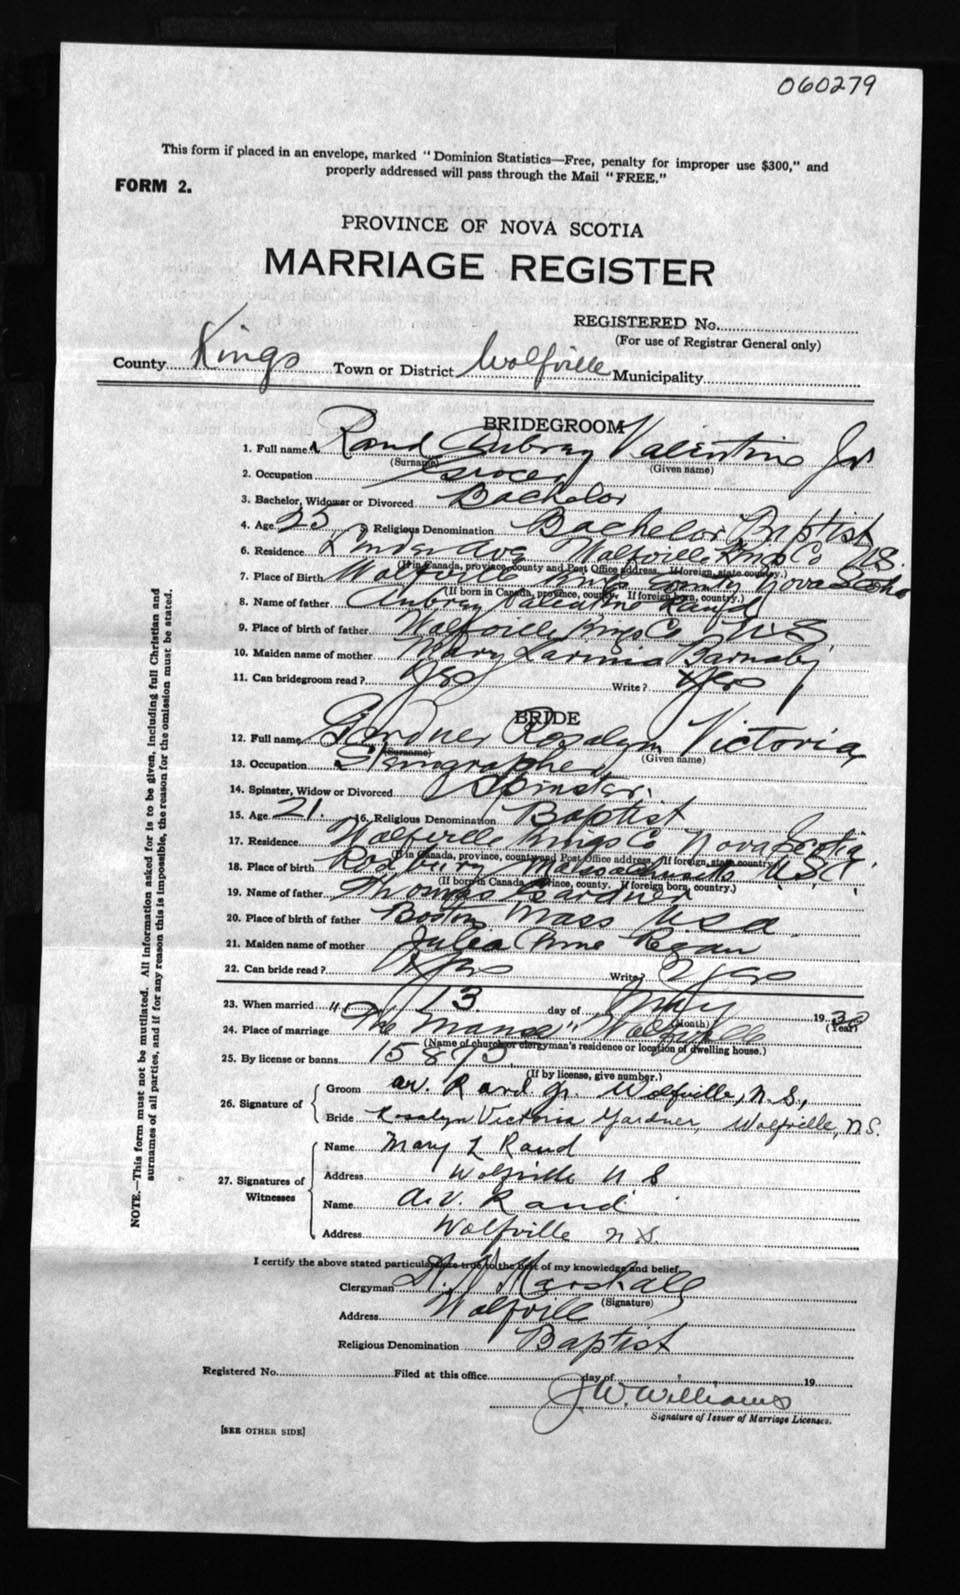 060279
This form if placed in an envelope, marked "Dominion Statistics—Free, penalty for improper use $300," and
properly addressed will pass through the Mail "FREE."
FORM 2.
PROVINCE OF NOVA SCOTIA
MARRIAGE REGISTER
REGISTERED No.
(For use of Registrar General only)
County Kings Town or District Wolfville Municipality
BRIDEGROOM
1. Full name Rand Aubrey Valentine Jr
(Surname) (Given name)
2. Occupation Grocer
3. Bachelor, Widower or Divorced Bachelor
4. Age 25 5. Religious Denomination Bachelor Baptist
6. Residence Linden Ave Wolfville Kings Co N.S.
(If in Canada, province, county and Post Office address. If foreign, state country.)
7. Place of Birth Wolfville Kings County Nova Scotia
(If born in Canada, province, county. If foreign born, country.)
8. Name of father Aubrey Valentine Rand
9. Place of birth of father Wolfville Kings Co N.S.
10. Maiden name of mother Mary Barnaby
11. Can bridegroom read? Yes Write? Yes
BRIDE
12. Full name Gardner Rosalyn Victoria
(Surname) (Given name)
13. Occupation Stenographer
14. Spinster, Widow or Divorced Spinster.
15. Age 21. 16. Religious Denomination Baptist
17. Residence Wolfville Kings Co Nova Scotia
(If in Canada, province, county and Post Office address. If foreign, state country.)
18. Place of birth Roxbury Massachusetts U.S.A
(If born in Canada, province, county. If foreign born, country.)
19. Name of father Thomas Gardner
20. Place of birth of father Boston Mass U.S.A.
21. Maiden name of mother Julia Anne Regan
22. Can bride read? Yes Write? Yes
23. When married 13. day of May 1930
(Month) (Year)
24. Place of marriage "The Manse" Wolfville
(Name of church or clergyman's residence or location of dwelling house.)
25. By license or banns 15875
(If by license, give number.)
26. Signature of Groom av. Rand Jr. Wolfville, N.S.,
Bride Rosalyn Victoria Gardner, Wolfville, N.S.
27. Signatures of Witnesses
Name Mary L Rand
Address Wolfville N S
Name A.V. Rand
Address Wolfville N.S.
I certify the above stated particulars are true to the best of my knowledge and belief.
Clergyman Marshall
(Signature)
Address Wolfville
Religious Denomination Baptist
Registered No. Filed at this office day of 19
J.W. Williams
Signature of Issuer of Marriage Licenses.
[SEE OTHER SIDE]
NOTE.—This form must not be mutilated. All information asked for is to be given, including full Christian and
surnames of all parties, and if for any reason this is impossible, the reason for the omission must be stated.